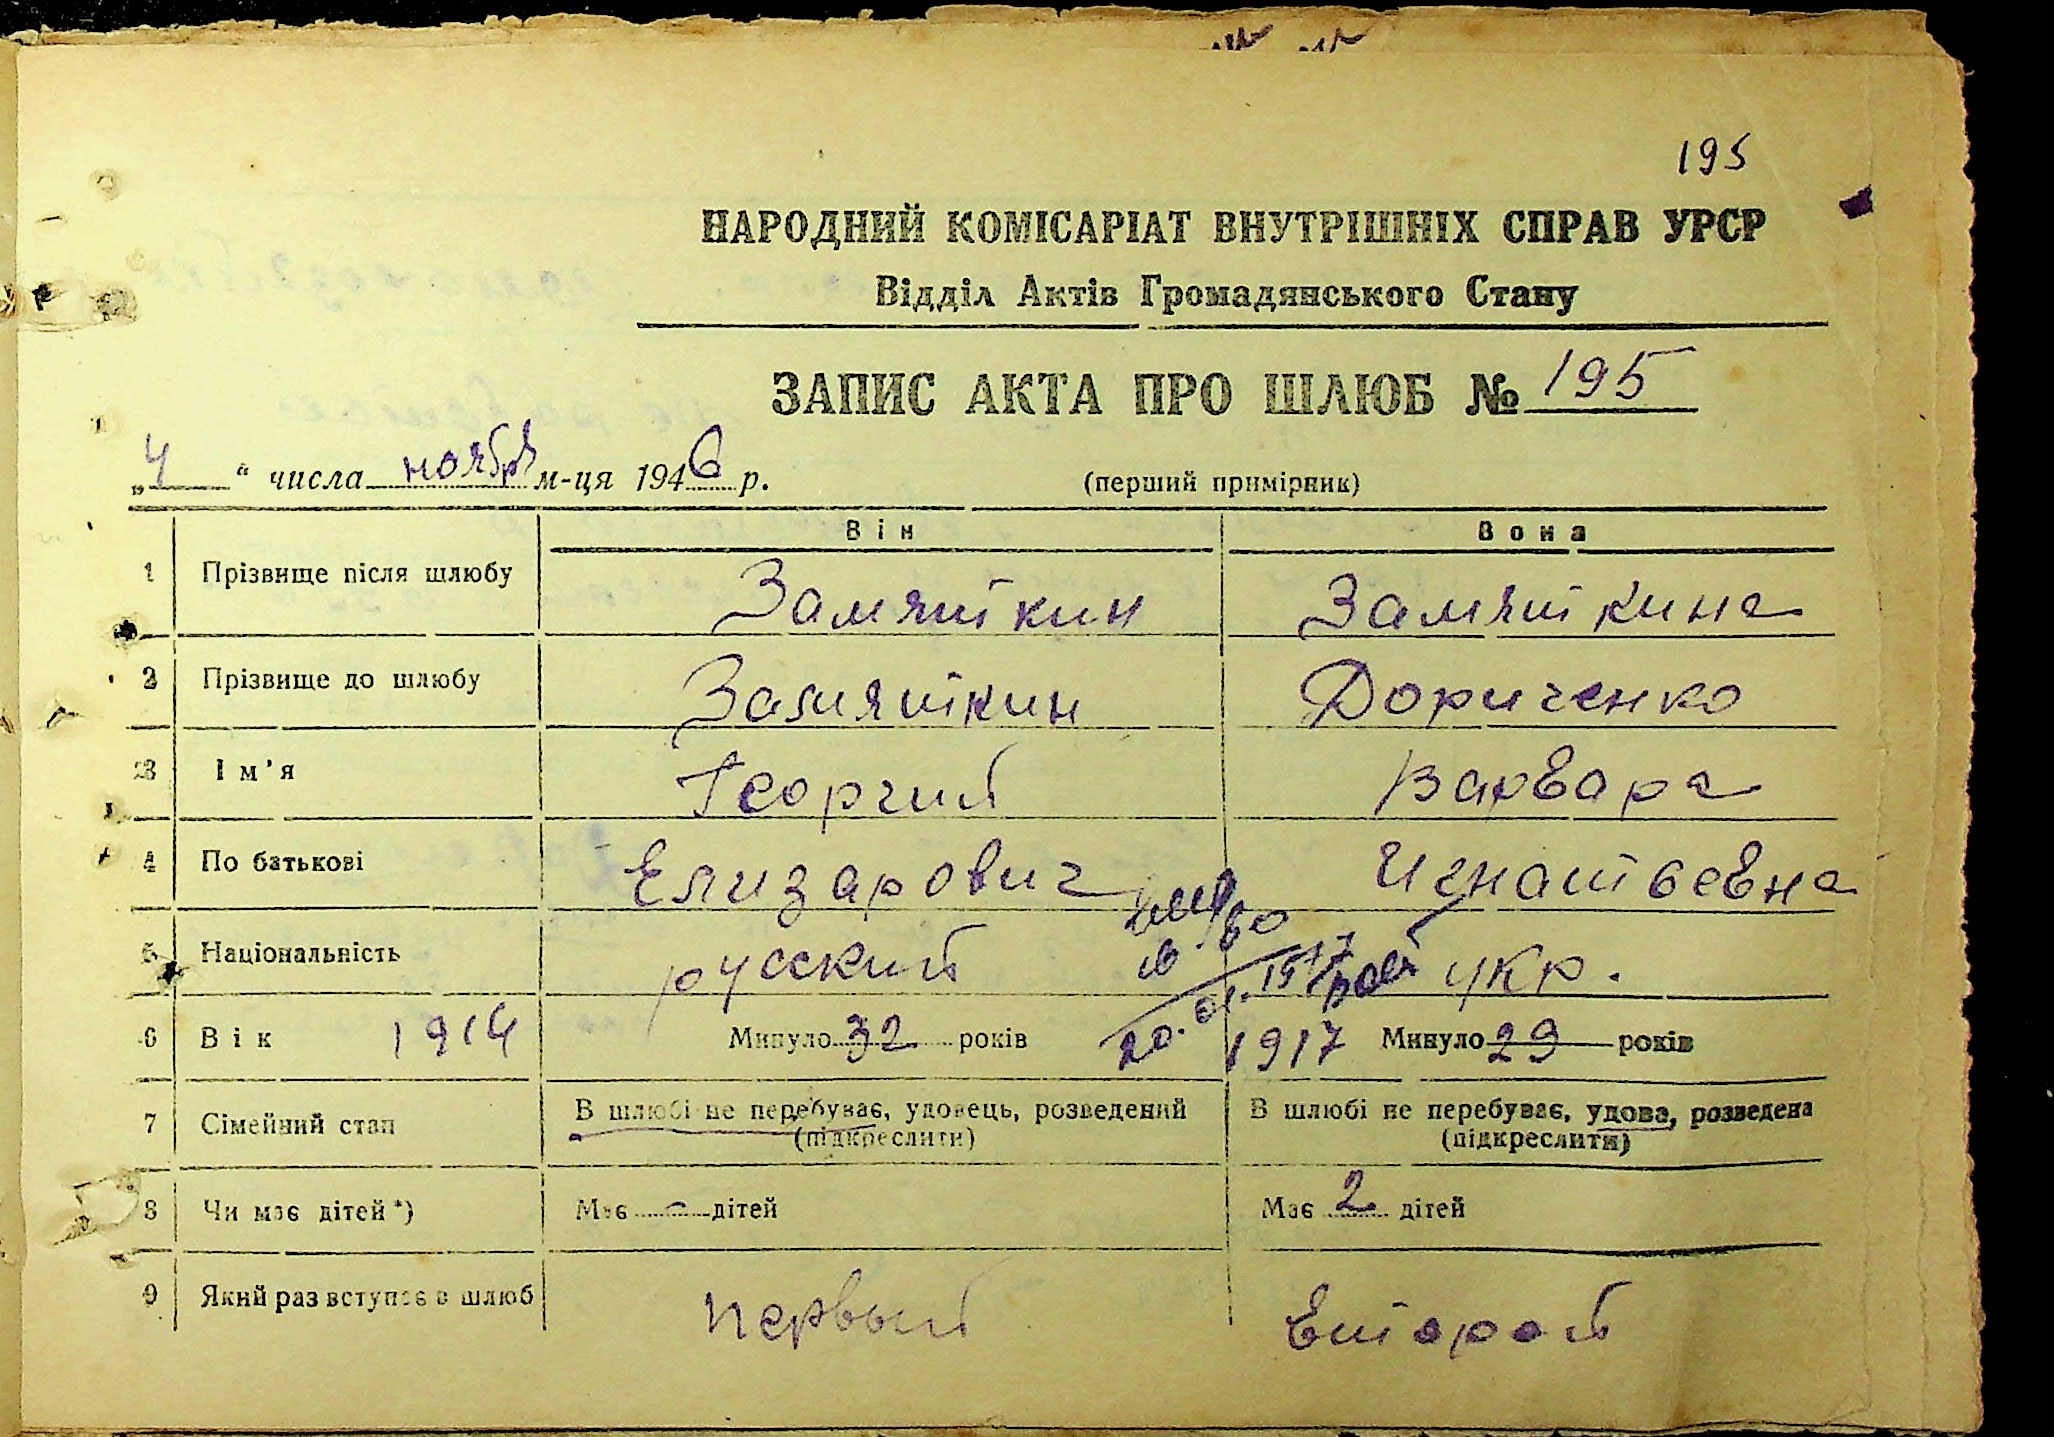 195
НАРОДНИЙ КОМІСАРІАТ ВНУТРІШНІХ СПРАВ УРСР
Відділ Актів Громадянського Стану
ЗАПИС АКТА ПРО ШЛЮБ № 195
„4“ числа ноября м-ця 1946 р. (перший примірник)
Він Вона
1 Прізвище після шлюбу Замяткин Замяткина
2 Прізвище до шлюбу Замяткин Дориченко
3 Ім'я Георгий Варвара
4 По батькові Елизарович Игнатьевна
5 Національність русский укр.
6 Вік 1914 Минуло 32 років 1917 Минуло 29 років
7 Сімейний стан В шлюбі не перебуває, удовець, розведений В шлюбі не перебуває, удова, розведена
(підкреслити) (підкреслити)
8 Чи має дітей *) Має - дітей Має 2 дітей
9 Який раз вступає в шлюб первый второй